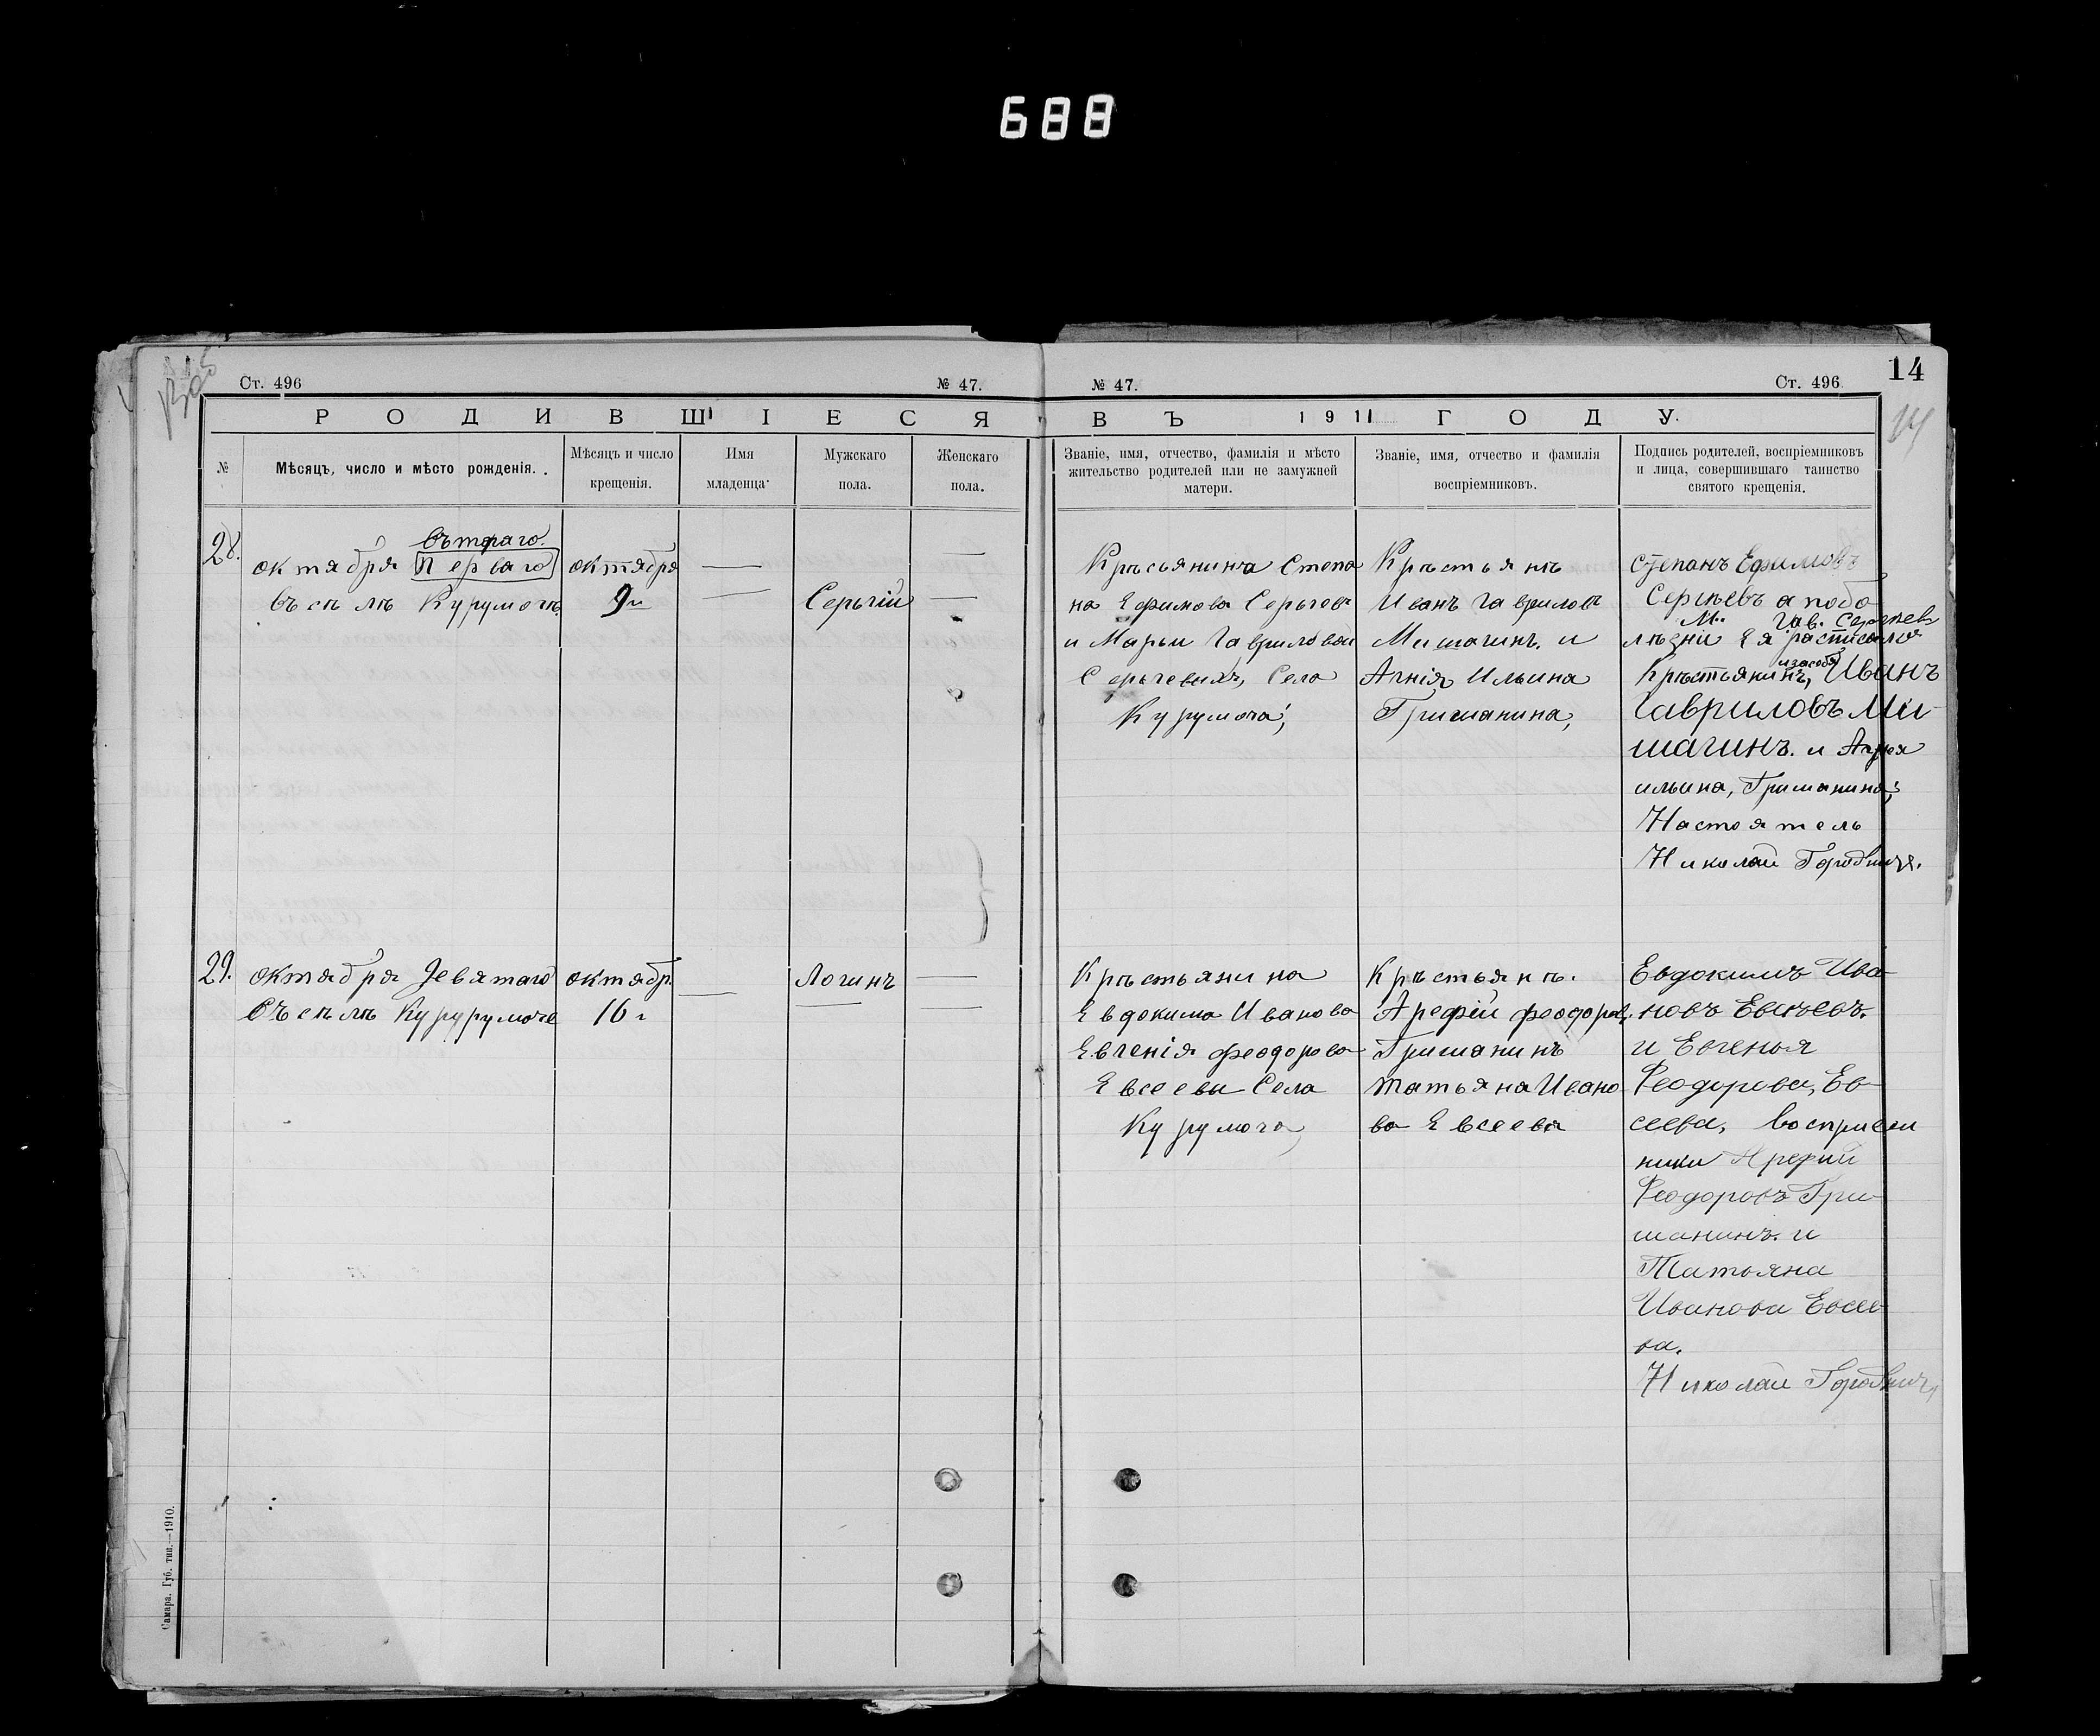 688
14
Ст. 496
№ 47.
№ 47.
Ст. 496
РОДИВШІЕСЯ
ВЪ 1911 ГОДУ.
№
Мѣсяцъ, число и мѣсто рожденія.
Мѣсяцъ и число
крещенія.
Имя
младенца
Мужскаго
пола.
Женскаго
пола.
Званіе, имя, отчество, фамилія и мѣсто
жительство родителей или не замужней
матери.
Званіе, имя, отчество и фамилія
воспріемниковъ.
Подпись родителей, воспріемниковъ
и лица, совершившаго таинство
святого крещенія.
28.
вътраго.
октября перваго
въ селѣ Курумочѣ
октября
9
Серьгій
Крѣсьянина Степа
на Ефимова Серьгева
и Марьи Гавриловой
Серьгевыхъ, Села
Курумоча;
Крѣстьянѣ
Иванъ Гавриловъ
Мишагинъ. и
Агнія Ильина
Гришанина,
Степанъ Ефимовъ
Сергѣевъ а побо
М. Гав. Сергѣев
лѣзни Ея расписался
и засебя
Крѣстьянинъ, Иванъ
Гавриловъ Ми-
шагинъ. и Агнея
ильина, Гришанина;
Настоятель
Николай
29.
октября Девятаго
Въ селѣ Курурумоче
октябр.
16
Логинъ
Крѣстьянина
Евдокима Иванова
Евгенія Феодорова
Евсеевы Села
Курумоча,
Крѣстьянѣ.
Арефій феодоров.
Гришанинъ
татьяна Ивано
ва Евсеева
Евдокимъ Ива-
новъ Евсѣевъ.
и Евгенья
Феодорова, Ев-
сеева, восприем
ники Арефий
Феодоровъ Гри-
шанинъ. и
Татьяна
Иванова Евсее-
ва.
Николай
14
Самара. Губ. тип.—1910.